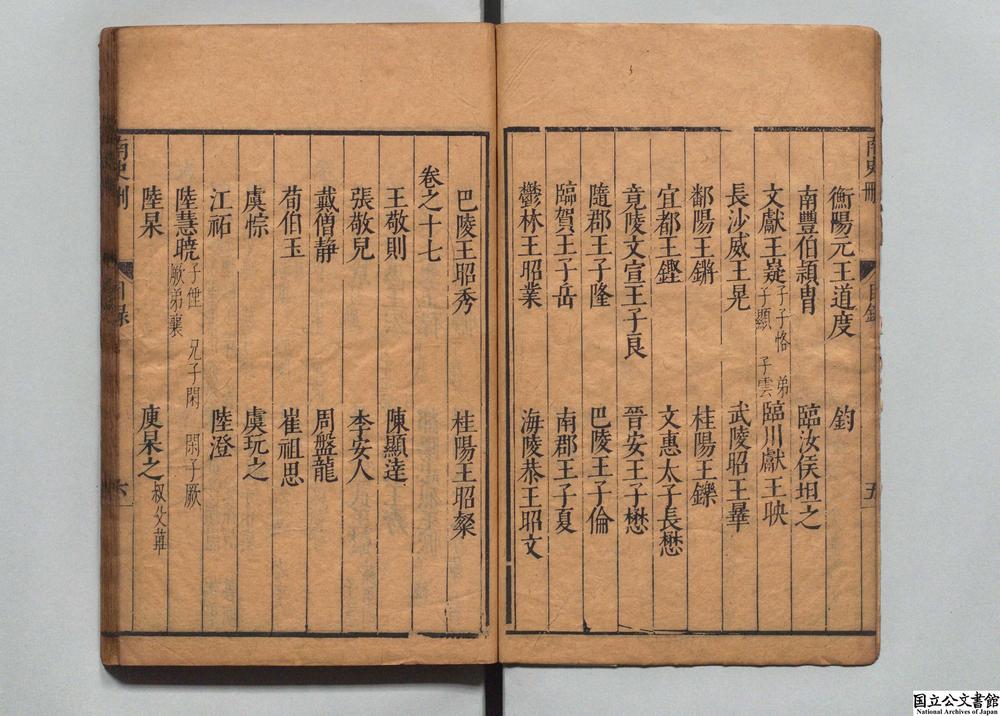 南史刪 目錄 五
衡陽元王道度 鈞
南豐伯頴胄 臨汝侯坦之
文獻王嶷 子子恪 弟子顯 子雲 臨川獻王映
長沙威王晃 武陵昭王曅
鄱陽王鏘 桂陽王鑠
宜都王鏗 文惠太子長懋
竟陵文宣王子良 晉安王子懋
隨郡王子隆 巴陵王子倫
臨賀王子岳 南郡王子夏
鬱林王昭業 海陵恭王昭文
巴陵王昭秀 桂陽王昭粲
卷之十七
王敬則 陳顯達
張敬兒 李安人
戴僧靜 周盤龍
荀伯玉 崔祖思
虞悰 虞玩之
江祏 陸澄
陸慧曉 子倕 兄子閑 閑子厥 厥弟襄
陸杲 庾杲之 叔父蓽
南史刪 目錄 六
国立公文書館
National Archives of Japan